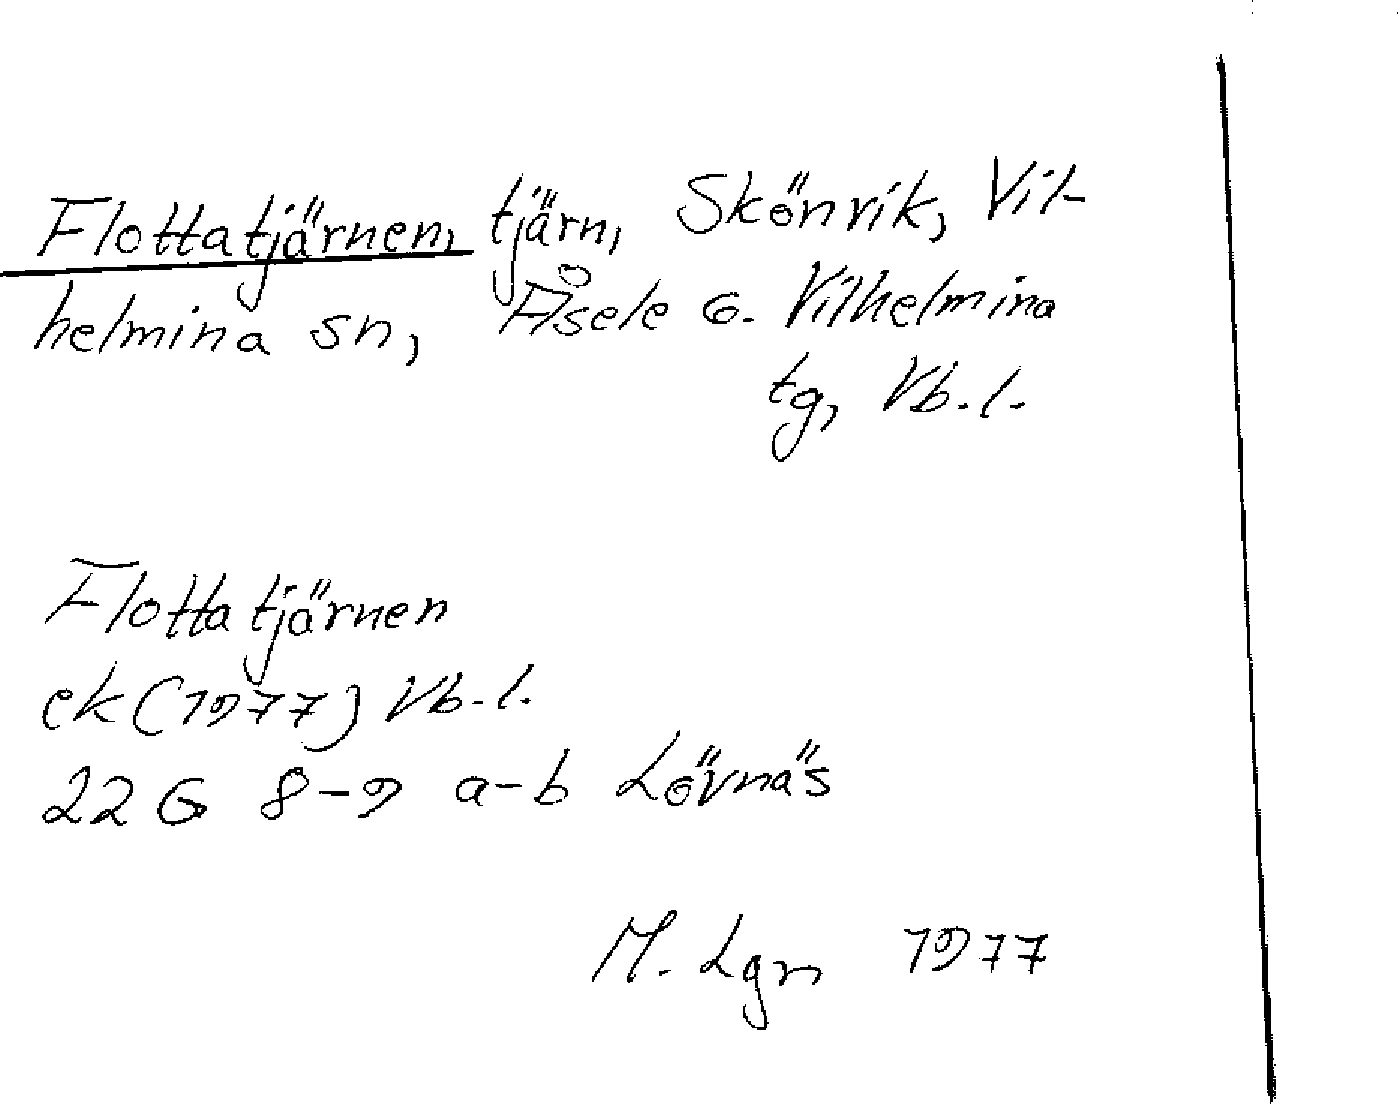 Flottatjärnen, tjärn, Skönvik, Vil-
helmina sn, Åsele G. Vilhelmina
tg, Vb.l.
Flottatjärnen
ek(1977) Vb.l.
22 G 8-9 a-b Lövnäs
M. Lgn 1977